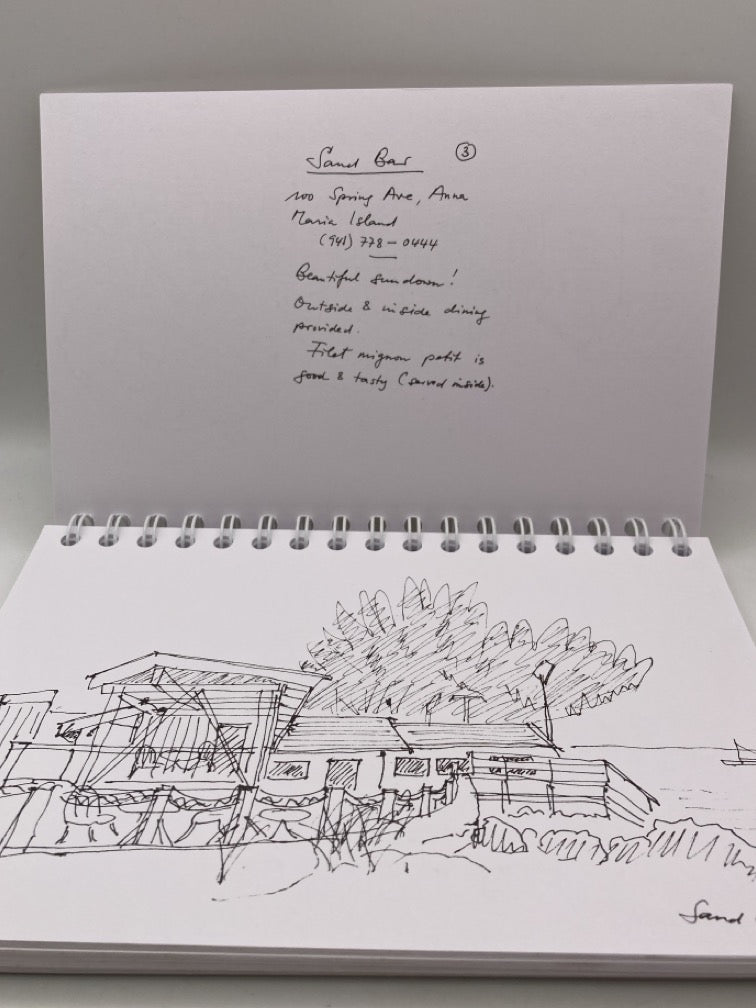 Sand Bar ③
100 Spring Ave, Anna
Maria Island
(941) 778-0444
Beautiful sundown!
Outside & inside dining
provided.
Filet mignon petit is
good & tasty (served inside).
Sand